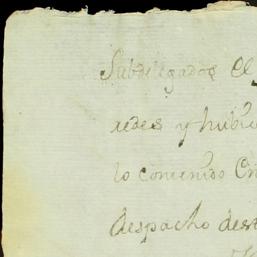 Subdelegados el
redes y hubie
lo contenido en
despacho des